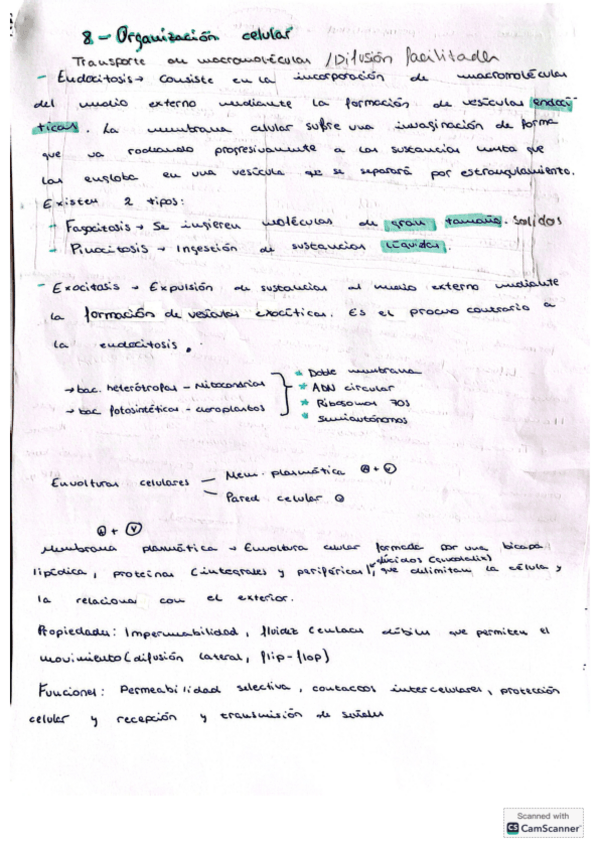 8 - Organización celular
Transporte de macromoléculas / Difusión facilitada
- Endocitosis → Consiste en la incorporación de macromoléculas
del medio externo mediante la formación de vesículas endocí-
ticas. La membrana celular sufre una invaginación de forma
que va rodeando progresivamente a las sustancias hasta que
las engloba en una vesícula que se separará por estrangulamiento.
Existen 2 tipos:
- Fagocitosis → Se ingieren moléculas de gran tamaño. Sólidos
- Pinocitosis → Ingestión de sustancias líquidas.
- Exocitosis → Expulsión de sustancias al medio externo mediante
la formación de vesículas exocíticas. Es el proceso contrario a
la endocitosis.
→ bac. heterótrofas - Mitocondrias
→ bac fotosintéticas - cloroplastos
* Doble membrana
* ADN circular
* Ribosomas 70S
* Semiautónomos
Envolturas celulares
Mem. plasmática Ⓐ + Ⓥ
Pared celular
Ⓐ + Ⓥ
Membrana plasmática → Envoltura celular formada por una bicapa
lipídica, proteínas (integrales y periféricas) y glúcidos (glucocálix), que delimitan la célula y
la relaciona con el exterior.
Propiedades: Impermeabilidad, fluidez (enlaces débiles que permiten el
movimiento (difusión lateral, flip-flop)
Funciones: Permeabilidad selectiva, contactos intercelulares, protección
celular y recepción y transmisión de señales
Scanned with
CS CamScanner